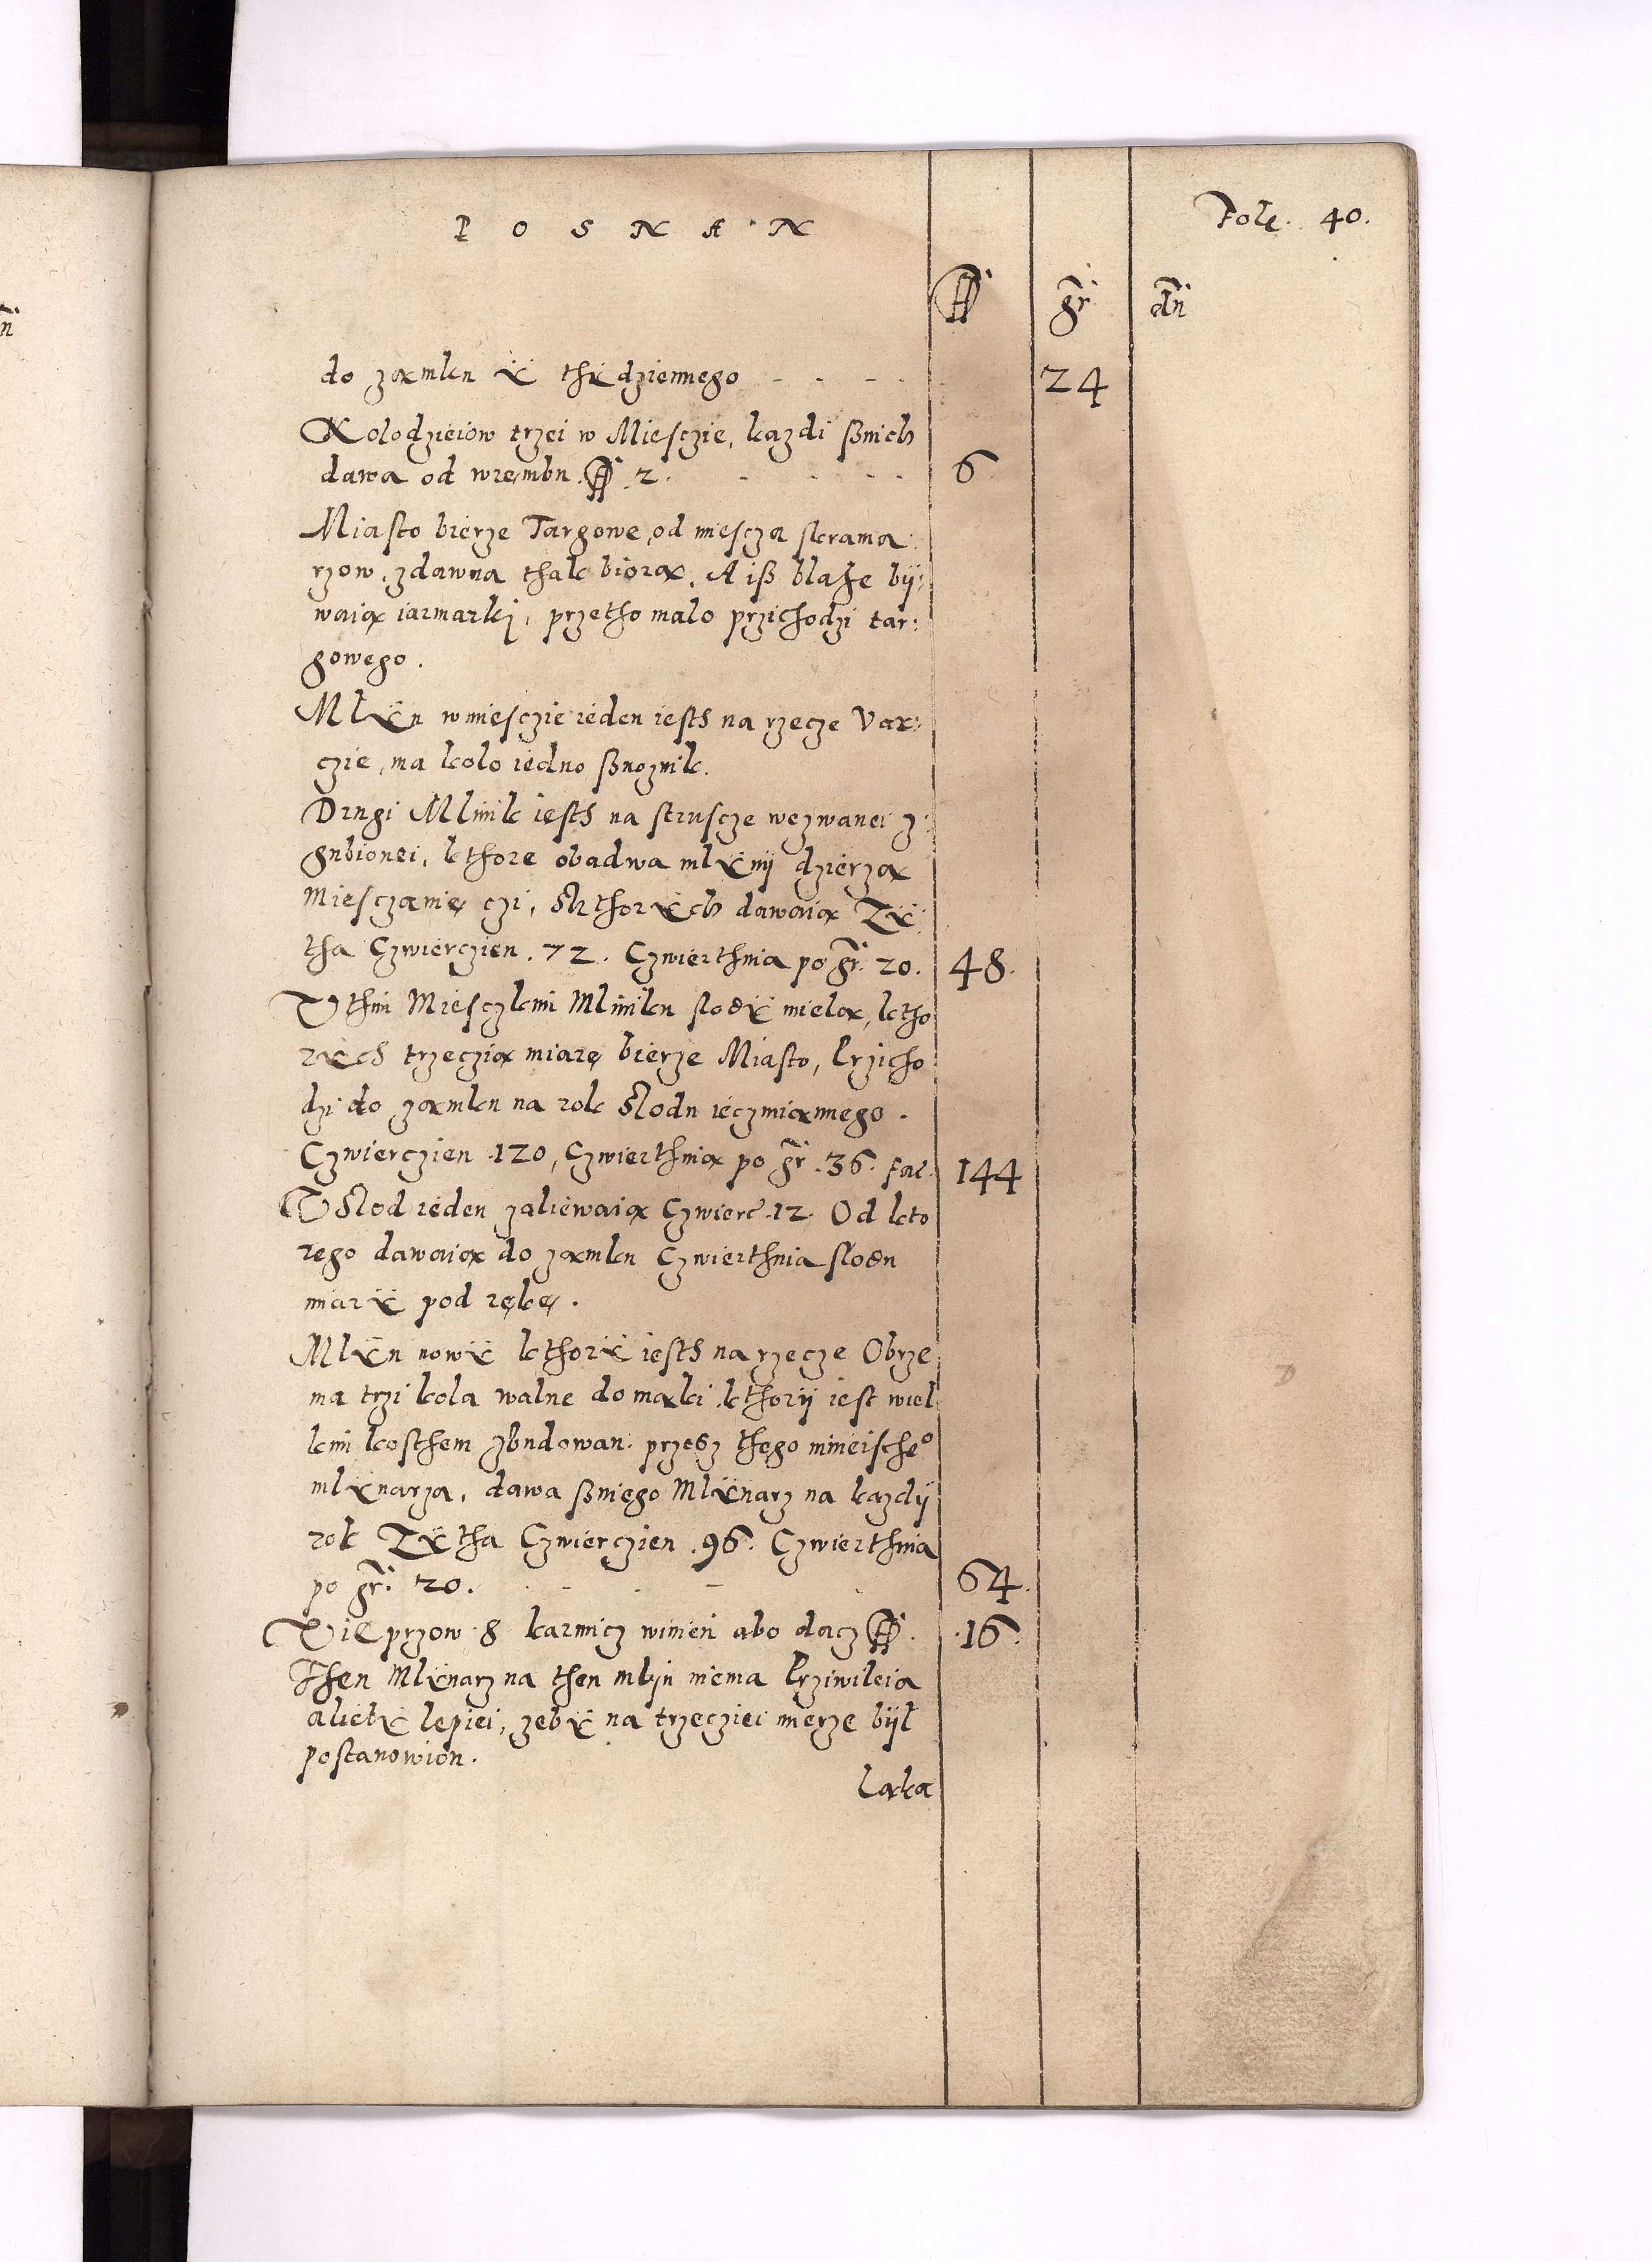 P O S N A N
Fole. 40.
fl gr dn
do zamku ÿ thÿdziennego - - - - 24
Kolodzieiow trzei w Miesczie, kazdi ßnich
dawa od wrembu fl 2. - - - - 6
Miasto bierze Targowe od miescza skrama:
rzow, zdawna thak biorą. A iß blahe bÿ:
waią iarmarki, przetho malo przichodzi tar:
gowego.
Młÿn wmiesczie ieden iesth na rzecze Var:
czie, ma kolo iedno ßnoznik.
Drugi Mlinik iesth na strusze wezwanei z:
gubionei, kthore obadwa mlÿnÿ dzierzą
Miesczanię czi, Skthorÿch dawaią Zÿ:
tha Czwierczien .72. Czwierthnia po gr. 20. 48.
Wthim Miesczkim Mlinikn slodÿ mielą, ktho
rÿch trzeczią miarę bierze Miasto, Przicho
dzi do zamku na rok Slodu ięczmiannego.
Czwierczien .120, Czwierthnią po gr .36. fac. 144
W Slod ieden zaliewaią Czwierc .12. Od kto
rego dawaią do zamku Czwierthnia slodu
miarÿ pod rękę.
Mlÿn nowÿ kthorÿ iesth na rzecze Obrze
ma trzi kola walne do mąki kthorÿ iest wiel
kim kosthem zbudowan. przesz thego minieische°
mlÿnarza, dawa ßniego Mlÿnarz na kazdÿ
rok Zÿtha Czwierczien .96. Czwierthnia
po gr. 20. - - - 64.
Wieprzow 8 karmicz winień abo dacz fl. .16.
Then Mlÿnarz na then mlyn niema Przivileia
alietÿ lepiei, zebÿ na trzecziei mierze bÿł
postanowion.
Laka